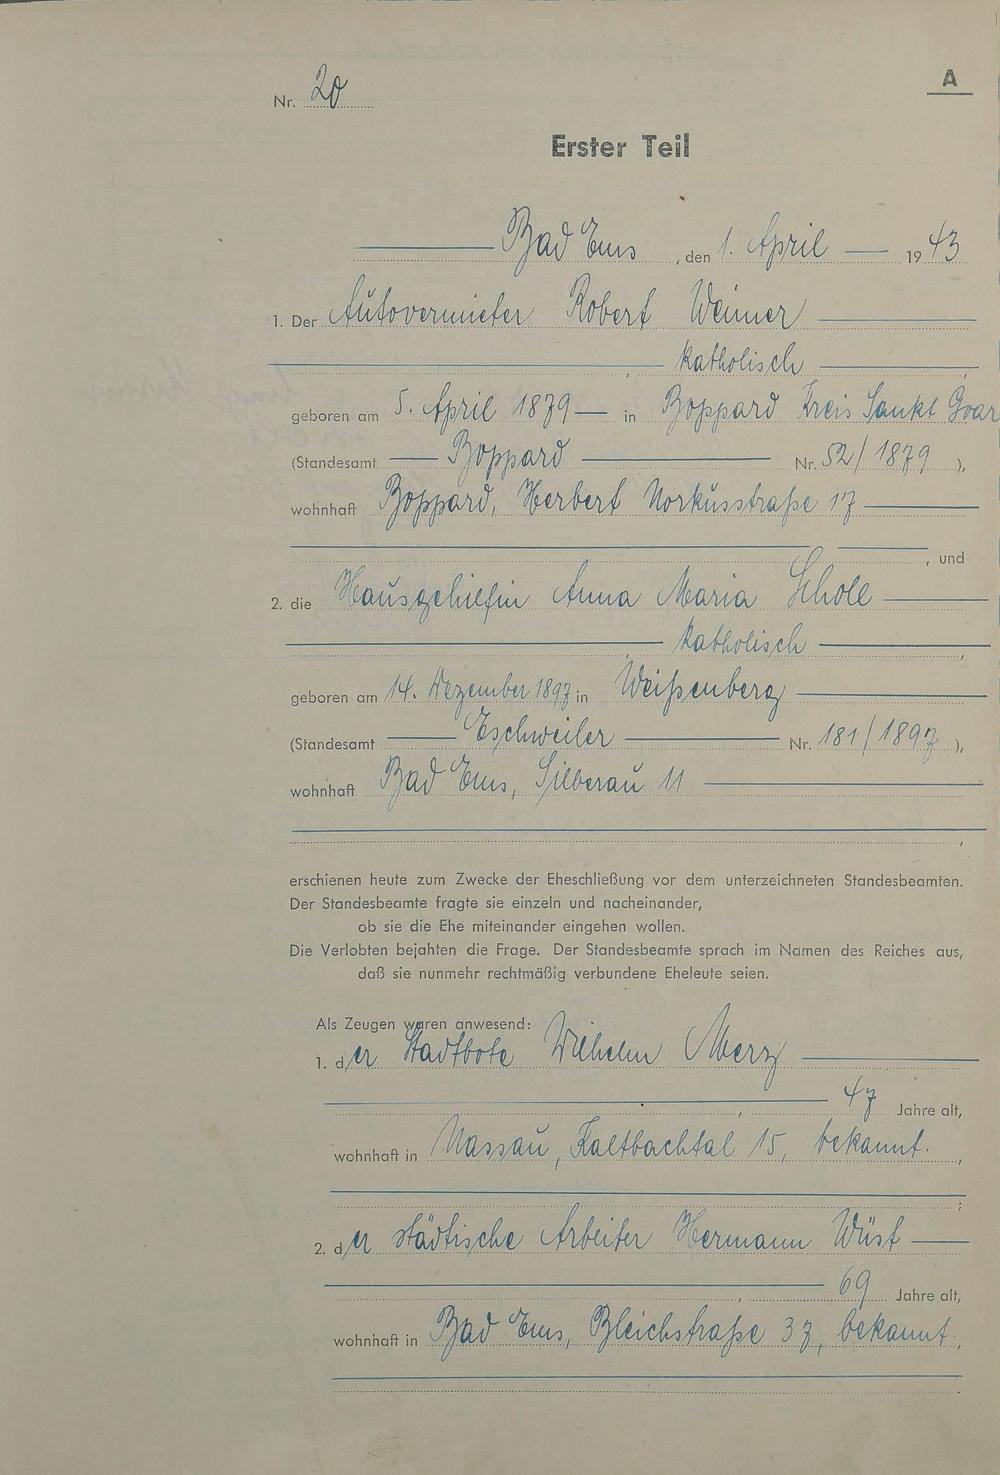 A
Nr. 20
Erster Teil
Bad Ems, den 1. April 1943
1. Der Autovermieter Robert Weimer
, katholisch,
geboren am 5. April 1879 in Boppard Kreis Sankt Goar
(Standesamt Boppard Nr. 52/1879 ),
wohnhaft Boppard, Herbert Norkusstraße 17
, und
2. die Hausgehilfin Anna Maria Scholl
, katholisch,
geboren am 14. Dezember 1897 in Weißenberg
(Standesamt Eschweiler Nr. 181/1897 ),
wohnhaft Bad Ems, Silberau 11
,
erschienen heute zum Zwecke der Eheschließung vor dem unterzeichneten Standesbeamten.
Der Standesbeamte fragte sie einzeln und nacheinander,
ob sie die Ehe miteinander eingehen wollen.
Die Verlobten bejahten die Frage. Der Standesbeamte sprach im Namen des Reiches aus,
daß sie nunmehr rechtmäßig verbundene Eheleute seien.
Als Zeugen waren anwesend:
1. der Stadtbote Wilhelm Merz
, 47 Jahre alt,
wohnhaft in Nassau, Kaltbachtal 15, bekannt.,
;
2. der städtische Arbeiter Hermann Wüst
, 69 Jahre alt,
wohnhaft in Bad Ems, Bleichstraße 37, bekannt.,
.